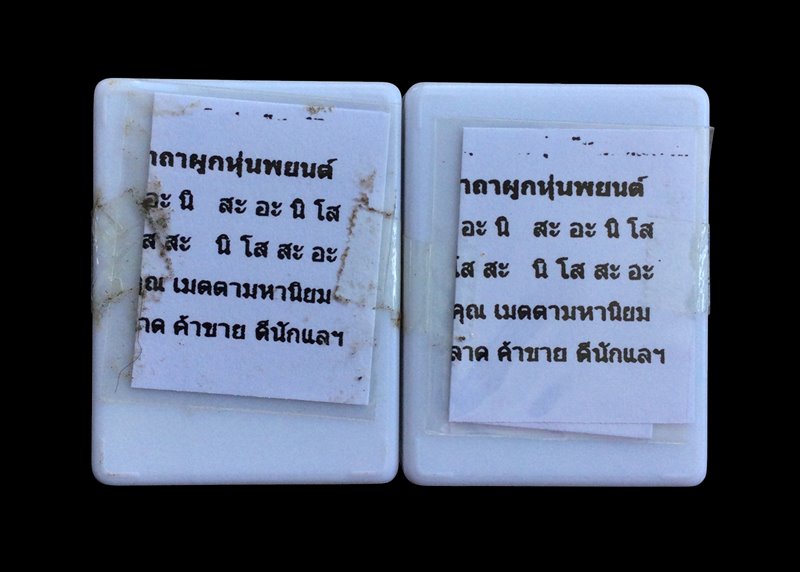 าถาผูกหุ่นพยนต์
อะ นิ สะ อะ นิ โส
ส สะ นิ โส สะ อะ
คุณ เมตตามหานิยม
าด ค้าขาย ดีนักแลฯ
าถาผูกหุ่นพยนต์
อะ นิ สะ อะ นิ โส
โส สะ นิ โส สะ อะ
คุณ เมตตามหานิยม
ลาด ค้าขาย ดีนักแลฯ